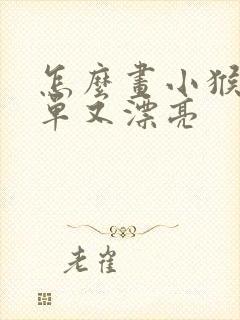 怎麼畫小猴
單又漂亮
老雀